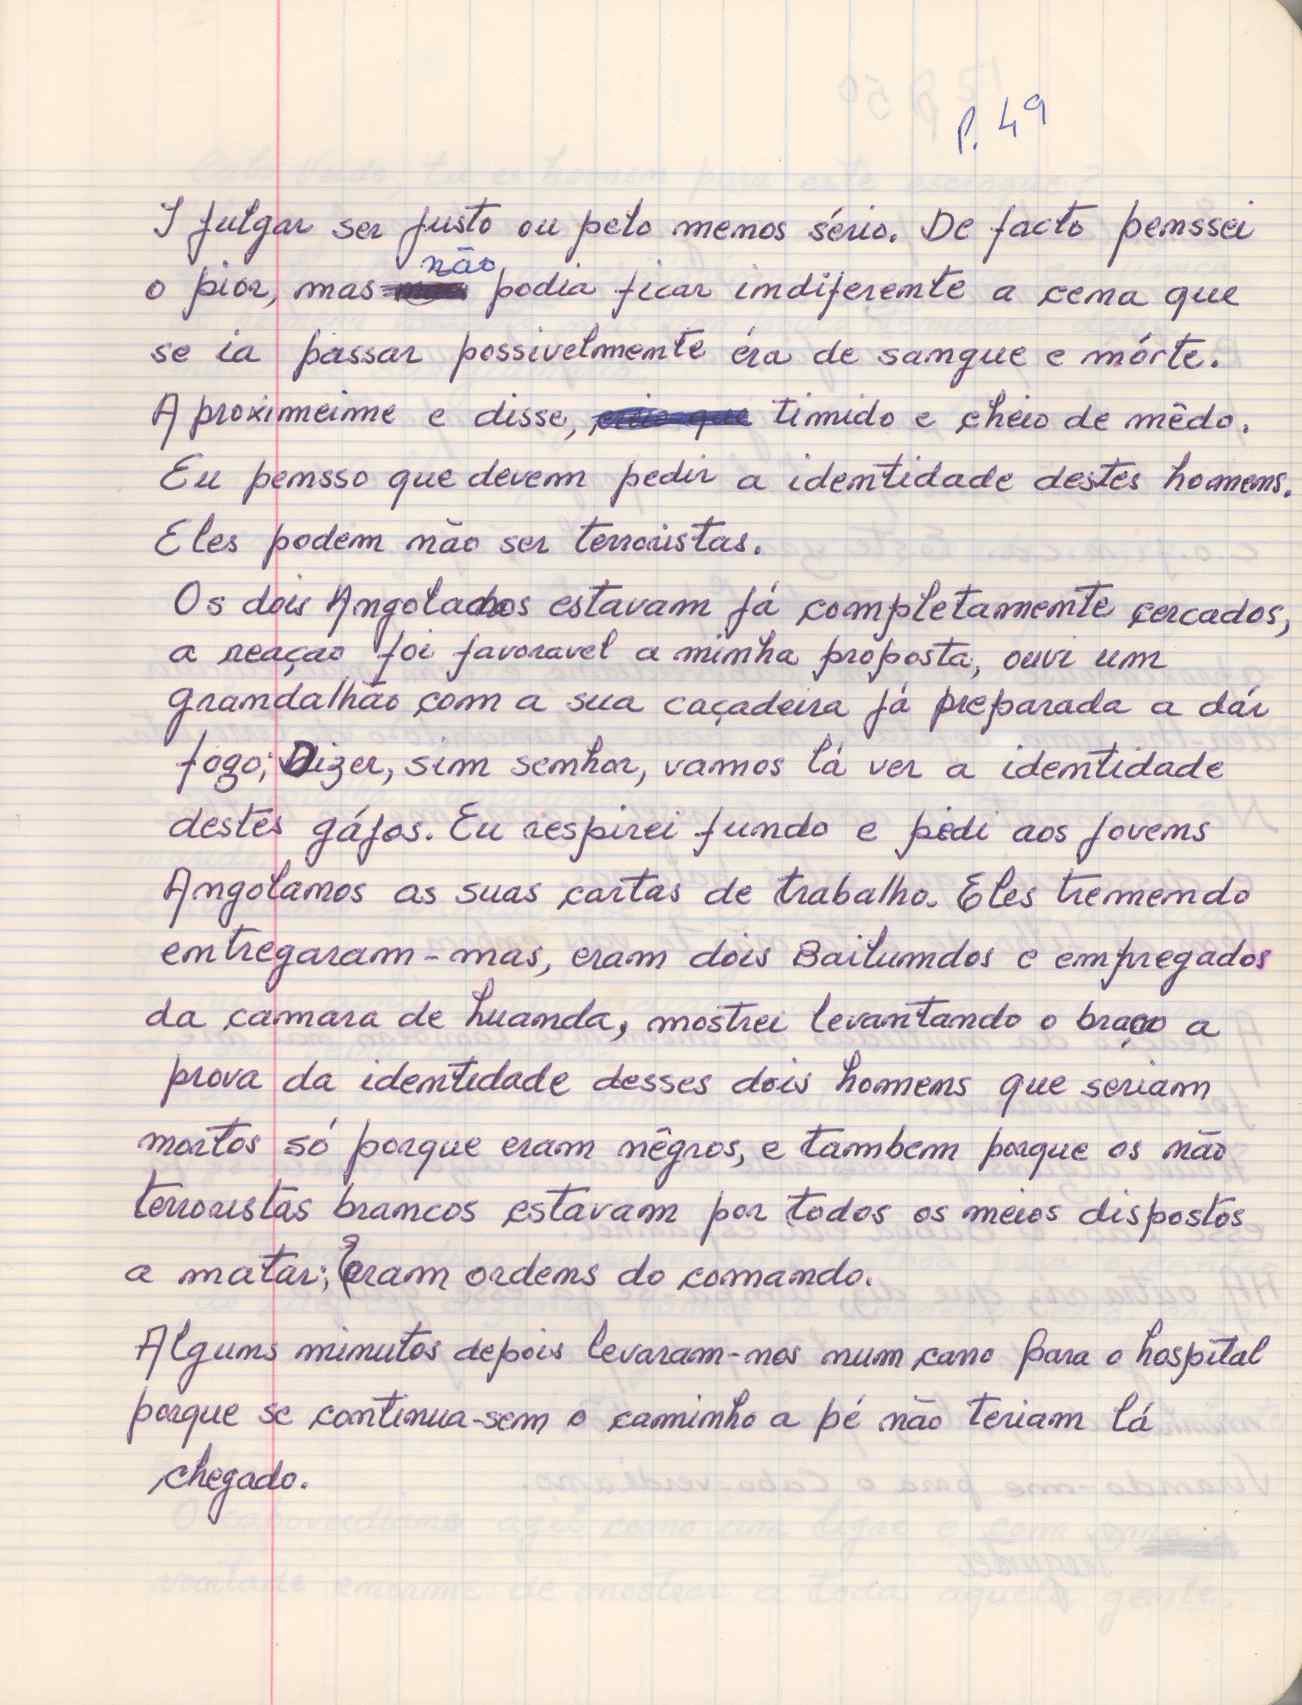 P. 49
I julgar ser justo ou pelo menos sério. De facto penssei
não
o pior, mas podia ficar indiferente a cena que
se ia passar possivelmente éra de sangue e mórte.
A proximeime e disse, timido e cheio de mêdo.
Eu pensso que devem pedir a identidade destes homens.
Eles podem não ser terroristas.
Os dois Angolanos estavam já completamente cercados,
a reaçao foi favoravel a minha proposta, ouvi um
grandalhão com a sua caçadeira já preparada a dár
fogo; Dizer, sim senhor, vamos lá ver a identidade
destes gájos. Eu respirei fundo e pedi aos jovens
Angolanos as suas cartas de trabalho. Eles tremendo
entregaram-mas, eram dois Bailundos e empregados
da camara de Luanda, mostrei levantando o braço a
prova da identidade desses dois homens que seriam
mortos só porque eram nêgros, e tambem porque os não
terroristas brancos estavam por todos os meios dispostos
a matar; eram ordens do comando.
Alguns minutos depois levaram-nos num carro para o hospital
porque se continua-sem o caminho a pé não teriam lá
chegado.